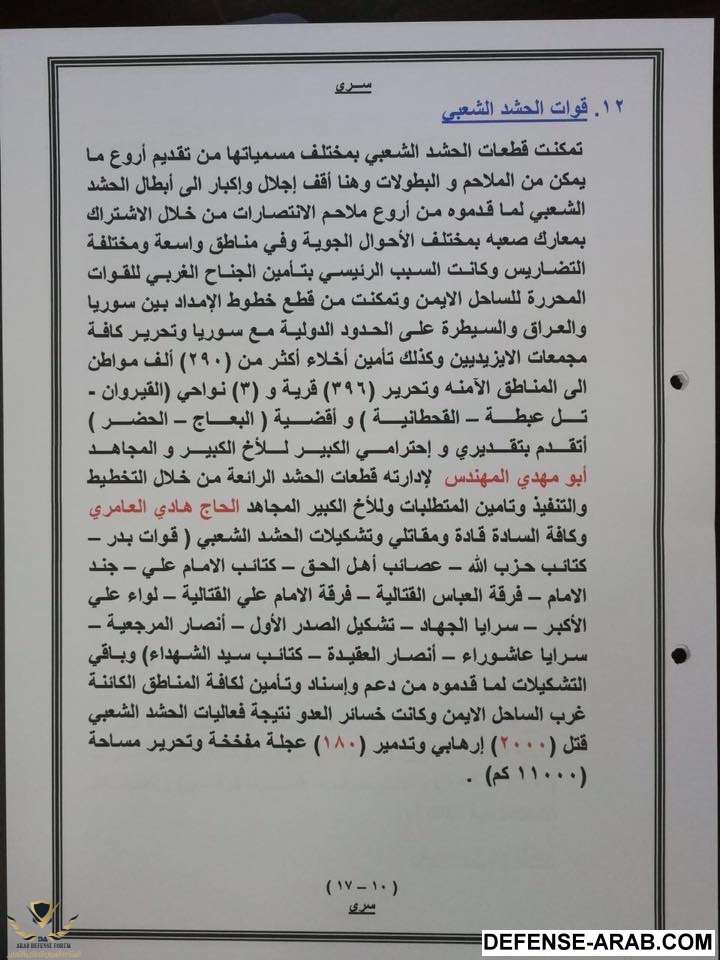 سري
١٢. قوات الحشد الشعبي
تمكنت قطعات الحشد الشعبي بمختلف مسمياتها من تقديم أروع ما
يمكن من الملاحم و البطولات وهنا أقف إجلال وإكبار الى أبطال الحشد
الشعبي لما قدموه من أروع ملاحم الانتصارات من خلال الاشتراك
بمعارك صعبه بمختلف الأحوال الجوية وفي مناطق واسعة ومختلفة
التضاريس وكانت السبب الرئيسي بتأمين الجناح الغربي للقوات
المحررة للساحل الايمن وتمكنت من قطع خطوط الإمداد بين سوريا
والعراق والسيطرة على الحدود الدولية مع سوريا وتحرير كافة
مجمعات الايزيديين وكذلك تأمين أخلاء أكثر من (٢٩٠) ألف مواطن
الى المناطق الآمنه وتحرير (٣٩٦) قرية و (٣) نواحي (القيروان -
تل عبطة – القحطانية ) و أقضية ( البعاج – الحضر )
أتقدم بتقديري و إحترامي الكبير للأخ الكبير و المجاهد
أبو مهدي المهندس لإدارته قطعات الحشد الرائعة من خلال التخطيط
والتنفيذ وتامين المتطلبات وللأخ الكبير المجاهد الحاج هادي العامري
وكافة السادة قادة ومقاتلي وتشكيلات الحشد الشعبي ( قوات بدر –
كتائب حزب الله – عصائب أهل الحق – كتائب الامام علي – جند
الامام – فرقة العباس القتالية – فرقة الامام علي القتالية – لواء علي
الأكبر – سرايا الجهاد – تشكيل الصدر الأول – أنصار المرجعية –
سرايا عاشوراء – أنصار العقيدة – كتائب سيد الشهداء) وباقي
التشكيلات لما قدموه من دعم وإسناد وتأمين لكافة المناطق الكائنة
غرب الساحل الايمن وكانت خسائر العدو نتيجة فعاليات الحشد الشعبي
قتل (٢٠٠٠) إرهابي وتدمير (١٨٠) عجلة مفخخة وتحرير مساحة
(١١٠٠٠ كم) .
( ١٠ – ١٧ )
سري
ARAB DEFENSE FORUM
DEFENSE-ARAB.COM